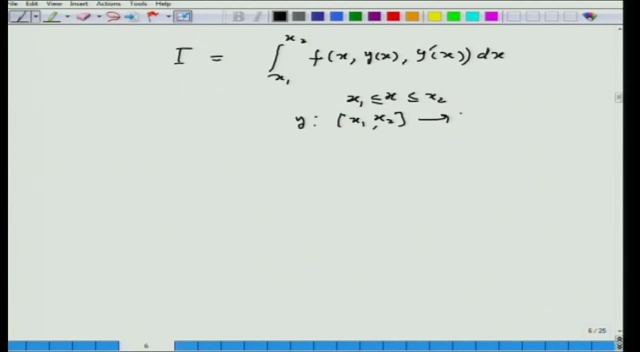 File Edit View Insert Actions Tools Help
I = ∫_{x₁}^{x₂} f(x, y(x), y'(x)) dx
x₁ ≤ x ≤ x₂
y : [x₁, x₂] ⟶
6 / 25
6